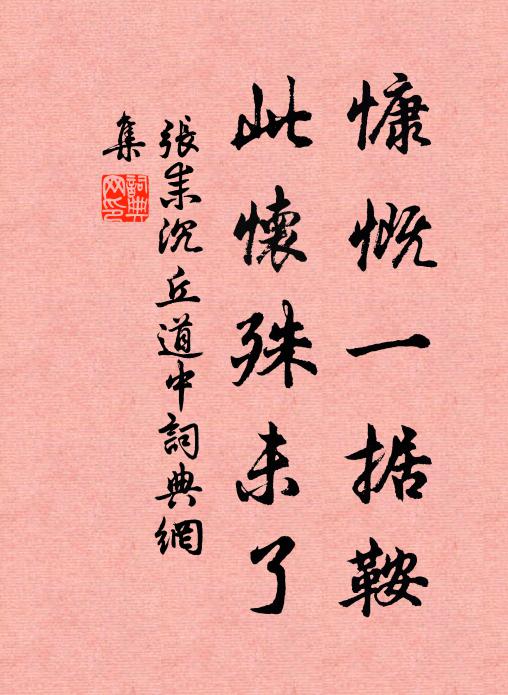 慷慨一据鞍
此懷殊未了
張耒沉丘道中詞典網
集
詞典
网印